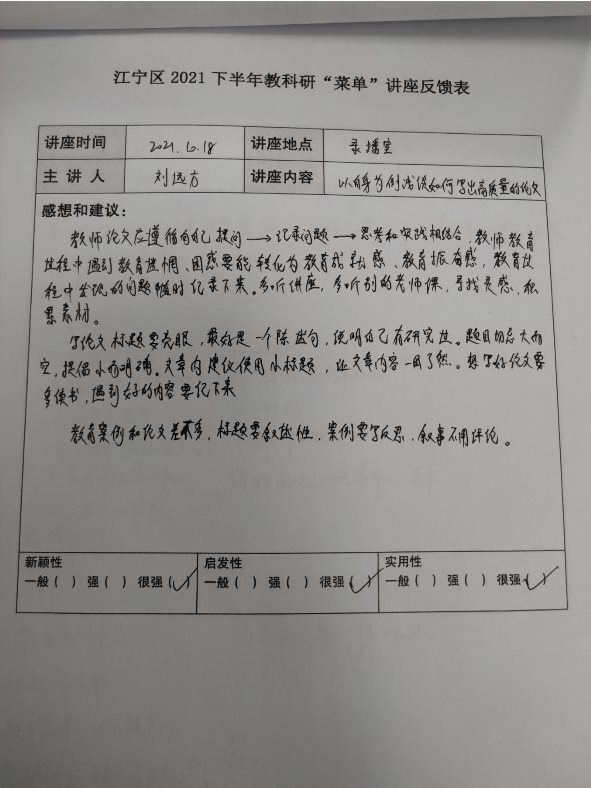 江宁区 2021 下半年教科研“菜单”讲座反馈表
讲座时间 2021.10.18 讲座地点 录播室
主 讲 人 刘远方 讲座内容 以自身为例浅谈如何写出高质量的论文
感想和建议：
教师论文应遵循自己提问→记录问题→思考和实践相结合，教师教育
过程中遇到教育迷惘、困惑要能转化为教育成就感、教育振奋感，教育过
程中发现的问题随时记录下来。多听讲座，多听别的老师课，寻找灵感，积
累素材。
写论文标题要亮眼，最好是一个陈述句，说明自己有研究过。题目勿忌大而
空，提倡小而明确。文章内建议使用小标题，让文章内容一目了然。想写好论文要
多读书，遇到好的内容要记下来
教育案例和论文差不多，标题要叙述性，案例要写反思，叙事不用评论。
新颖性
一般（ ） 强（ ） 很强（✓）
启发性
一般（ ） 强（ ） 很强（✓）
实用性
一般（ ） 强（ ） 很强（✓）